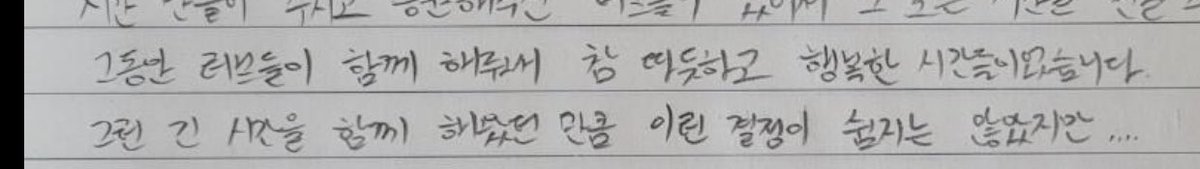 그동안 러브들이 함께 해줘서 참 따듯하고 행복한 시간들이었습니다.
그런 긴 시간을 함께 해왔던 만큼 이런 결정이 쉽지는 않았지만 ....